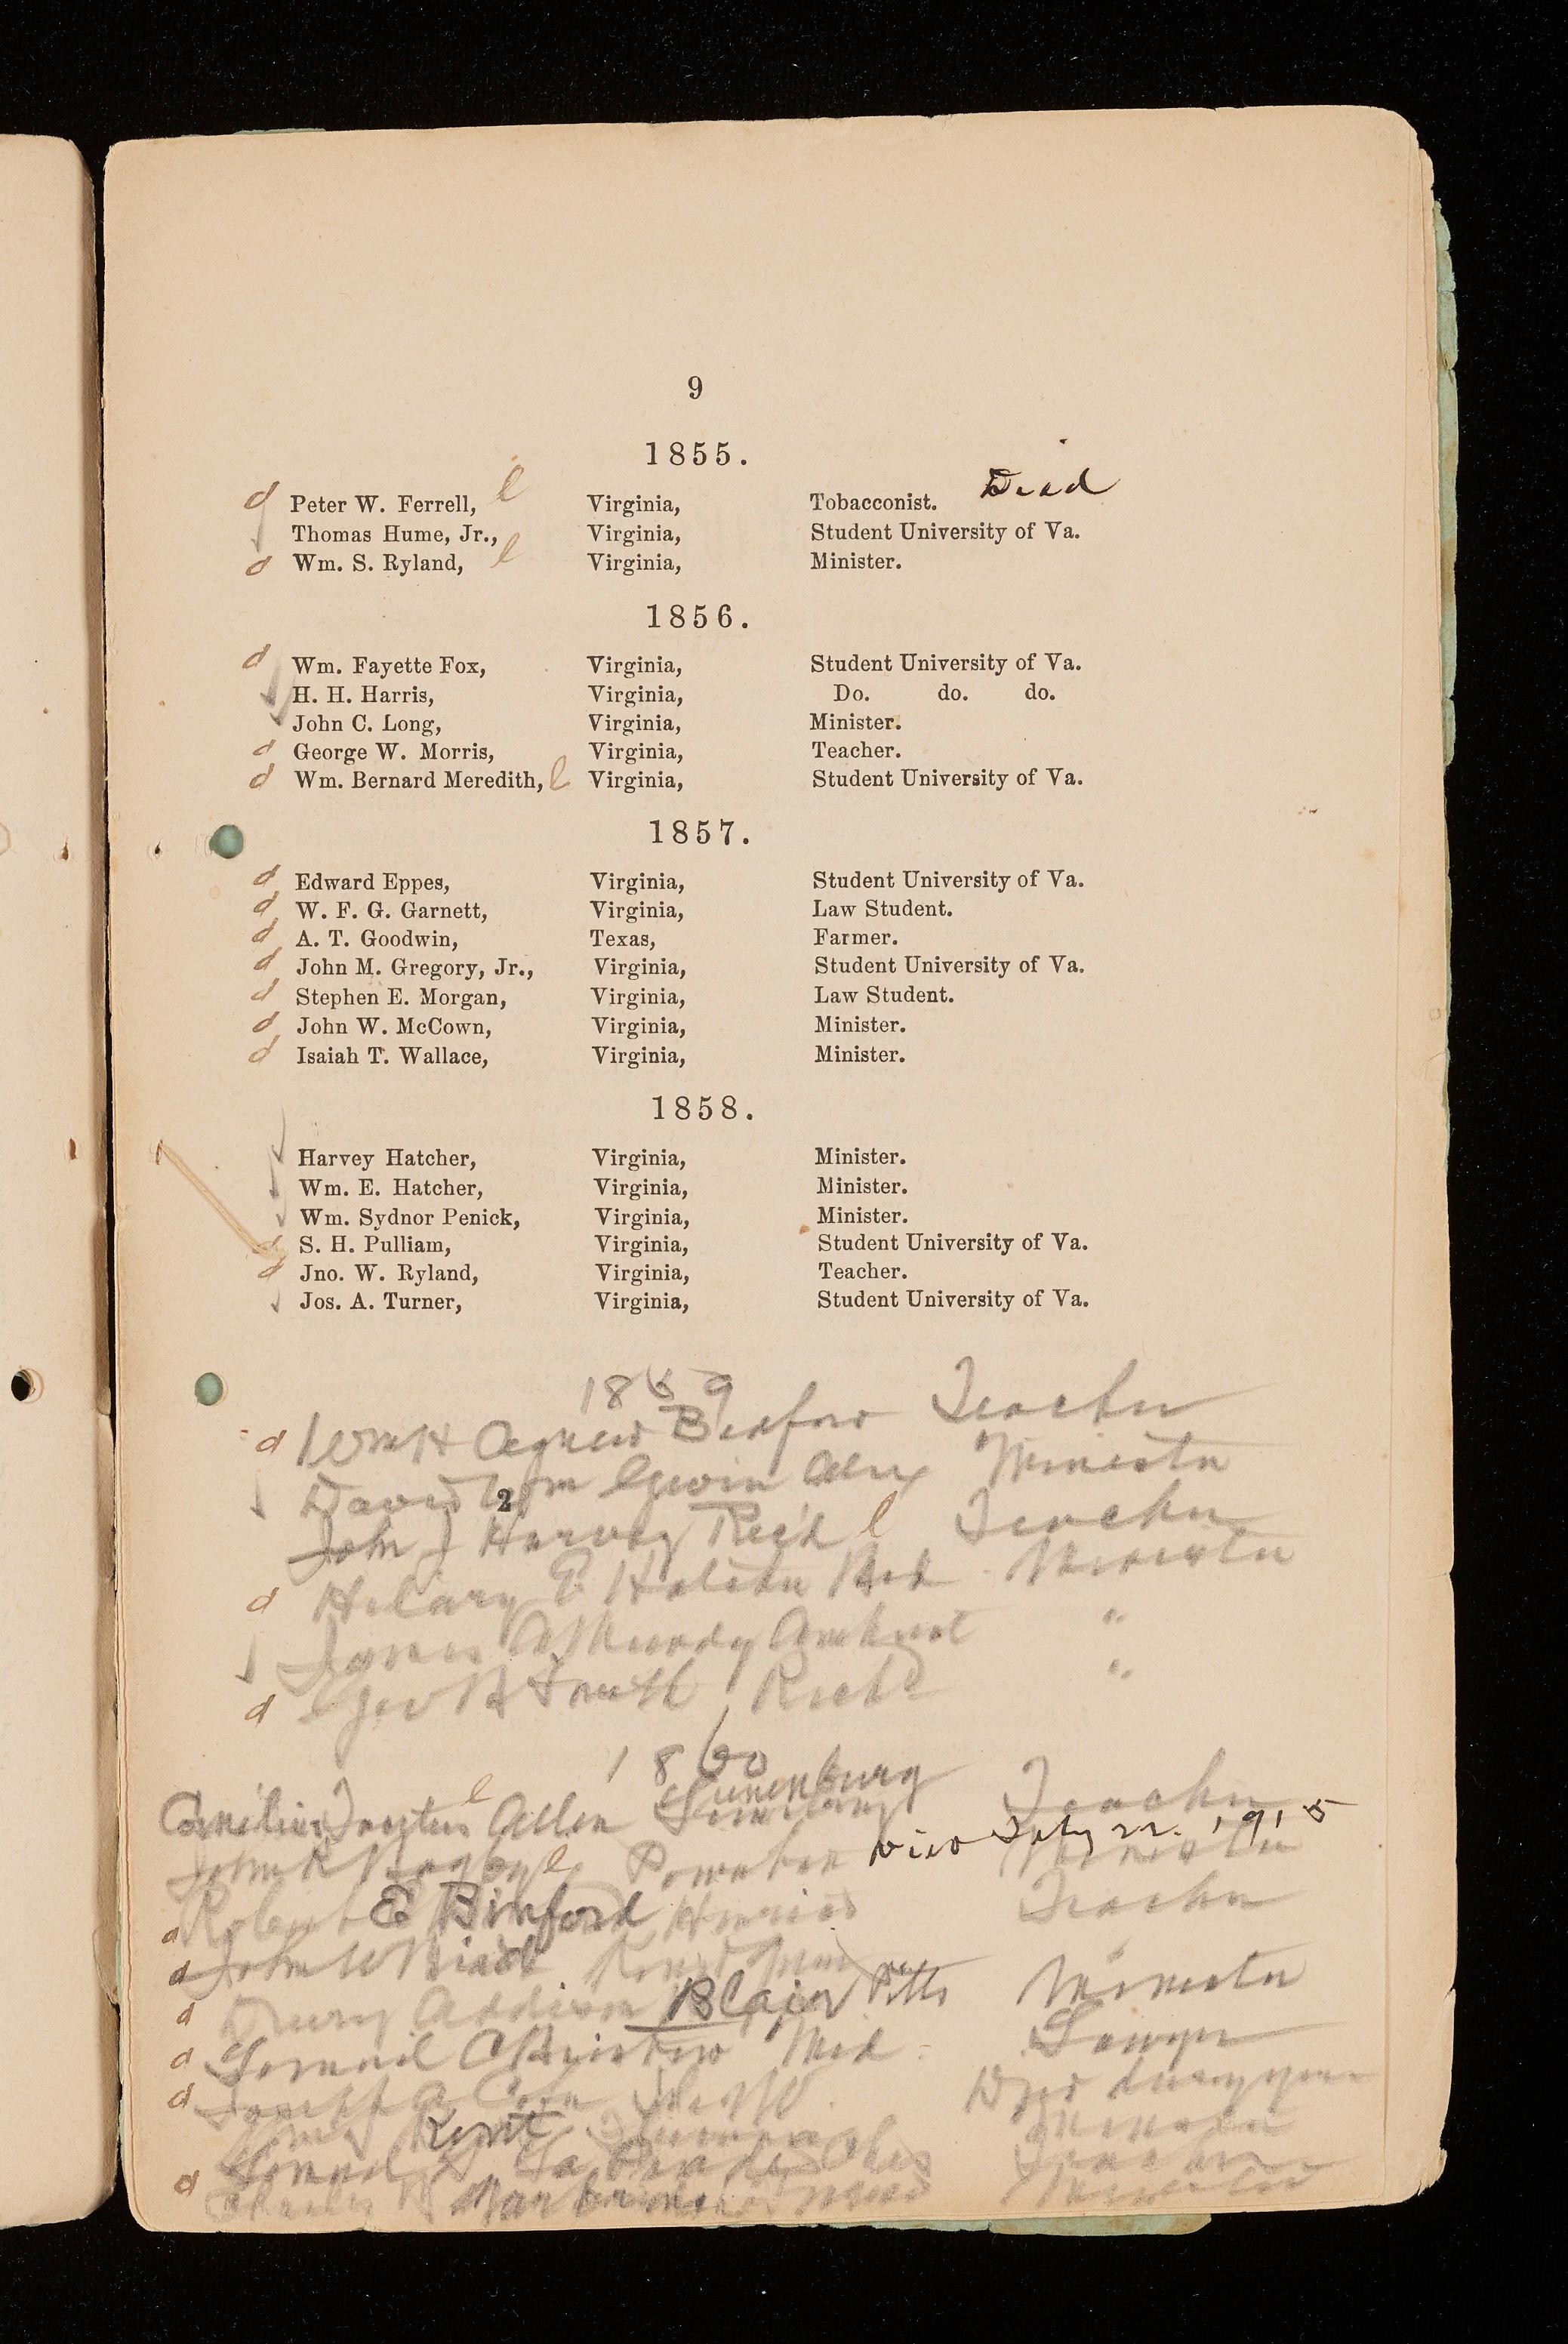 9
1855.
d Peter W. Ferrell, l Virginia, Tobacconist. Dead
Thomas Hume, Jr., Virginia, Student University of Va.
d Wm. S. Ryland, l Virginia, Minister.
1856.
d Wm. Fayette Fox, Virginia, Student University of Va.
H. H. Harris, Virginia, Do. do. do.
John C. Long, Virginia, Minister.
d George W. Morris, Virginia, Teacher.
d Wm. Bernard Meredith, l Virginia, Student University of Va.
1857.
d Edward Eppes, Virginia, Student University of Va.
d W. F. G. Garnett, Virginia, Law Student.
d A. T. Goodwin, Texas, Farmer.
d John M. Gregory, Jr., Virginia, Student University of Va.
d Stephen E. Morgan, Virginia, Law Student.
d John W. McCown, Virginia, Minister.
d Isaiah T. Wallace, Virginia, Minister.
1858.
Harvey Hatcher, Virginia, Minister.
Wm. E. Hatcher, Virginia, Minister.
Wm. Sydnor Penick, Virginia, Minister.
d S. H. Pulliam, Virginia, Student University of Va.
d Jno. W. Ryland, Virginia, Teacher.
Jos. A. Turner, Virginia, Student University of Va.
1859
d Wm H Agnew Teacher
David Wm Gwin Alex Minister
2
John J Harvey Rich'd l Teacher
d Hilary E Hatcher Bed Minister
James A Mundy Amherst "
d Geo B Smith Rich'd "
1860
Cornelius Allen l Lunenburg Teacher
John R Bagby l Powhatan Minister
Died July 22. 1915
d Robert E Binford Henrico Teacher
d John W
d Drury Addison Blair Pitts Minister
d A Bristow Mid Lawyer
d Joseph A
Kent Minister
d Teacher
Minister